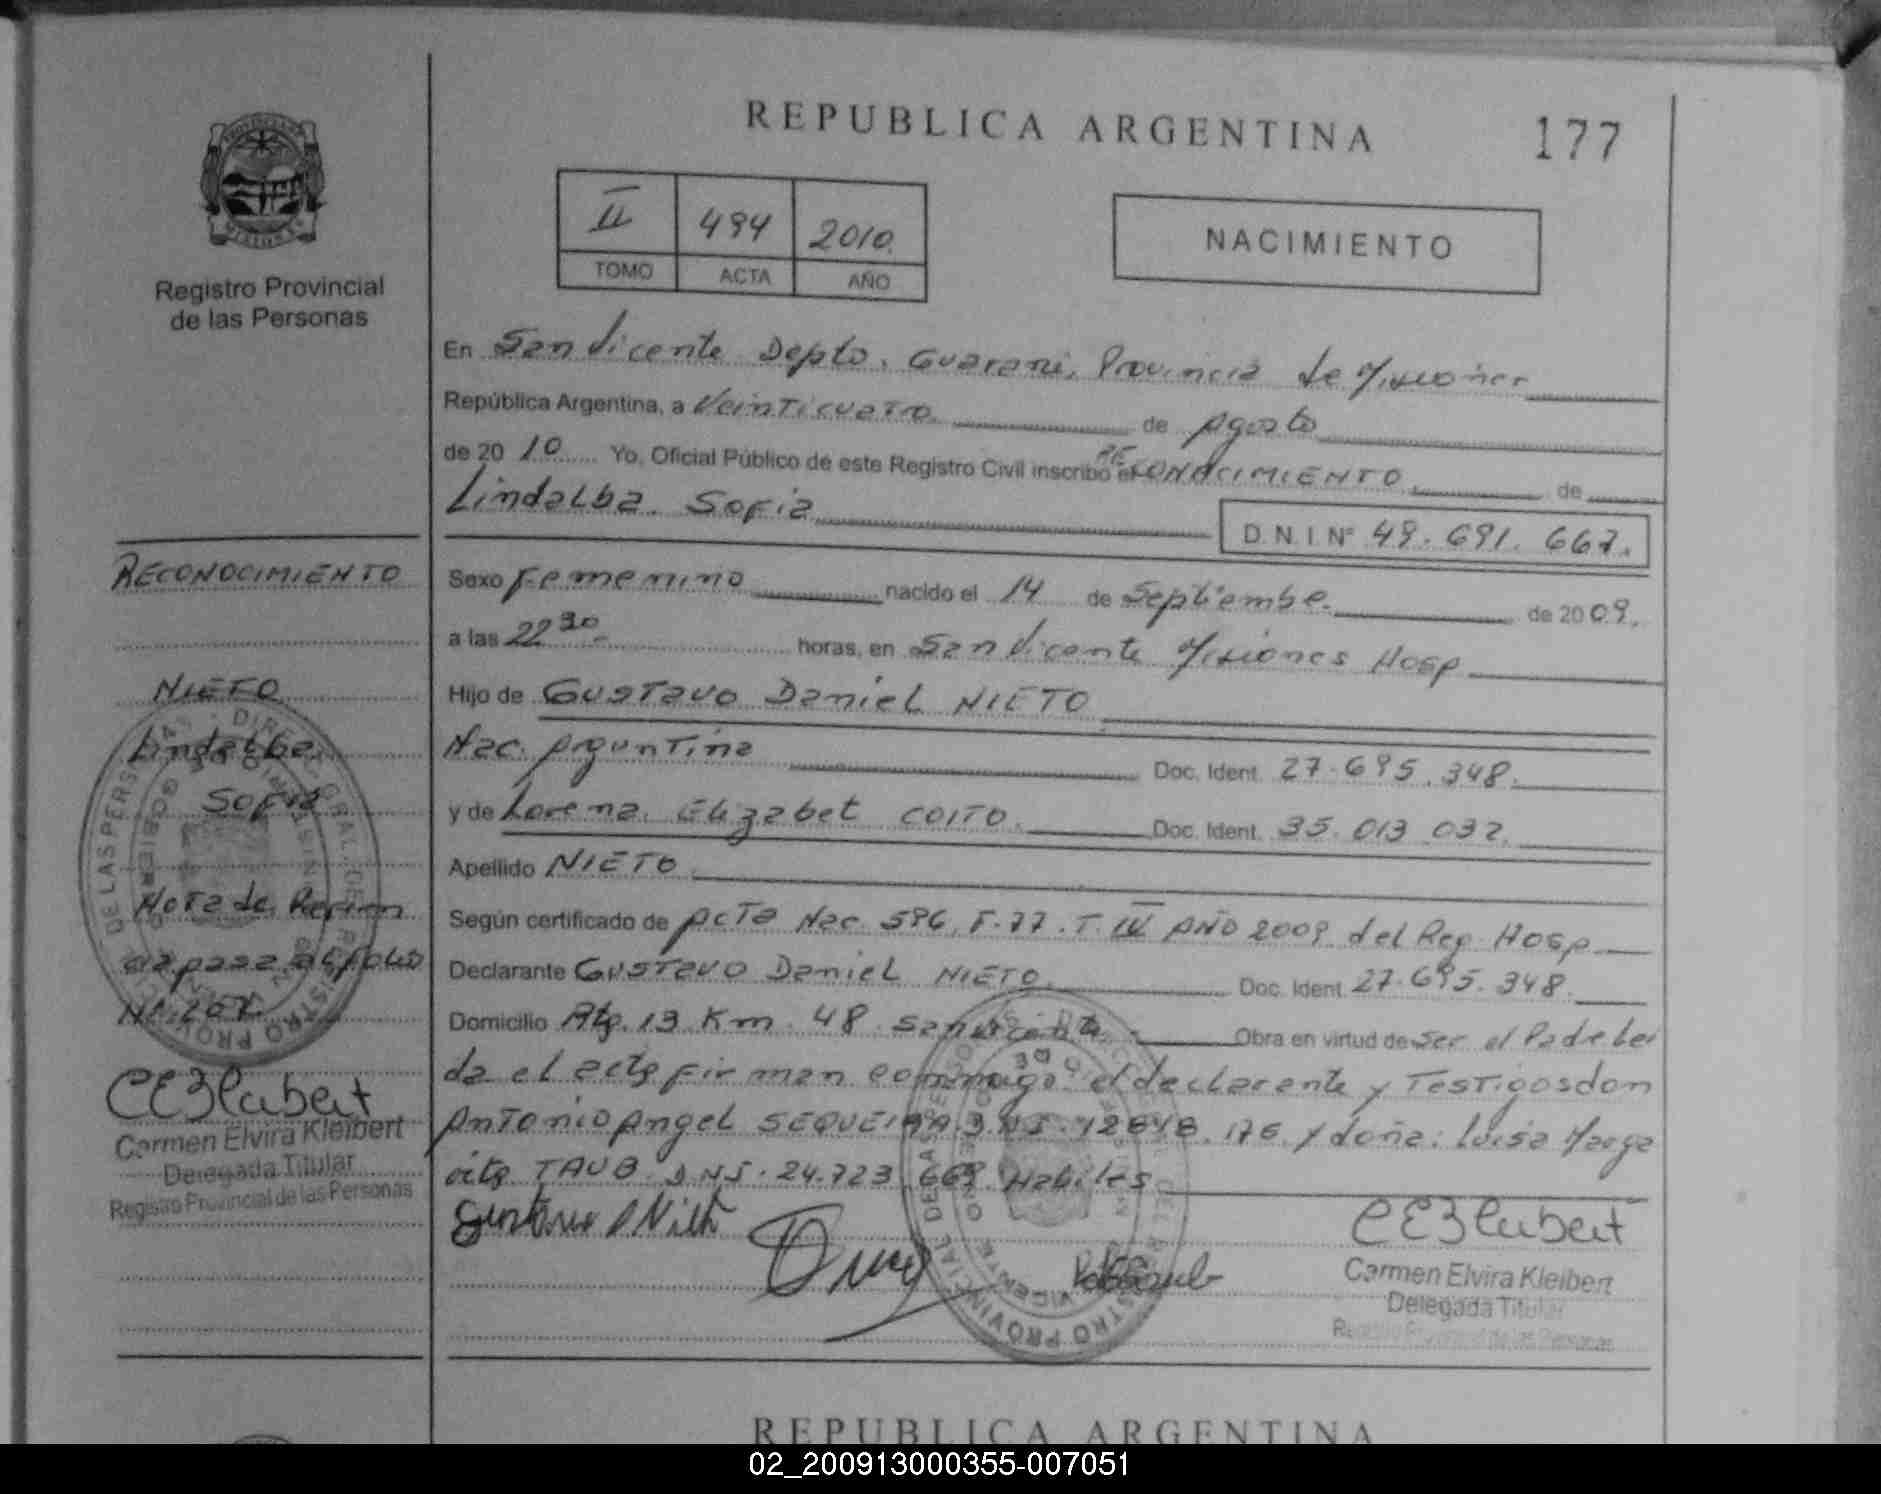 REPUBLICA ARGENTINA
177
II 494 2010.
TOMO ACTA AÑO
NACIMIENTO
Registro Provincial
de las Personas
En San Vicente Depto. Guarani, Provincia de Misiones
República Argentina, a Veinticuatro de Agosto
de 20 10 Yo, Oficial Público de este Registro Civil inscribo el RECONOCIMIENTO de
Lindalba Sofia
D.N.I.Nº 49.691.667.
Sexo Femenino nacido el 14 de Septiembe. de 2009.
a las 22 30 horas, en San Vicente Misiones Hosp
Hijo de Gustavo Daniel NIETO
Nac. Argentina Doc. Ident. 27.695.348.
y de Lorena Elizabet COITO. Doc. Ident. 35.013.032.
Apellido NIETO
Según certificado de Acta Nac. 596, F.77.T.IV AÑO 2009 del Reg. Hosp
Declarante Gustavo Daniel NIETO. Doc. Ident. 27.695.348.
Domicilio Rta. 13 Km. 48 San Vicente Obra en virtud de Ser el Padre Lei
da el acta firman conmigo el declarante y Testigos don
Antonio Angel SEQUEIRA D.N.I. 12848.176. y doña: Luisa Marga
rita TAUB. DNI. 24.723.669 Habiles
CE3Kleibert
Carmen Elvira Kleibert
Delegada Titular
Registro Provincial de las Personas
RECONOCIMIENTO
NIETO
Lindalba
Sofia
Nota de
se pasa al folio
Nº 207
CE3Kleibert
Carmen Elvira Kleibert
Delegada Titular
Registro Provincial de las Personas
REPUBLICA ARGENTINA
02_200913000355-007051